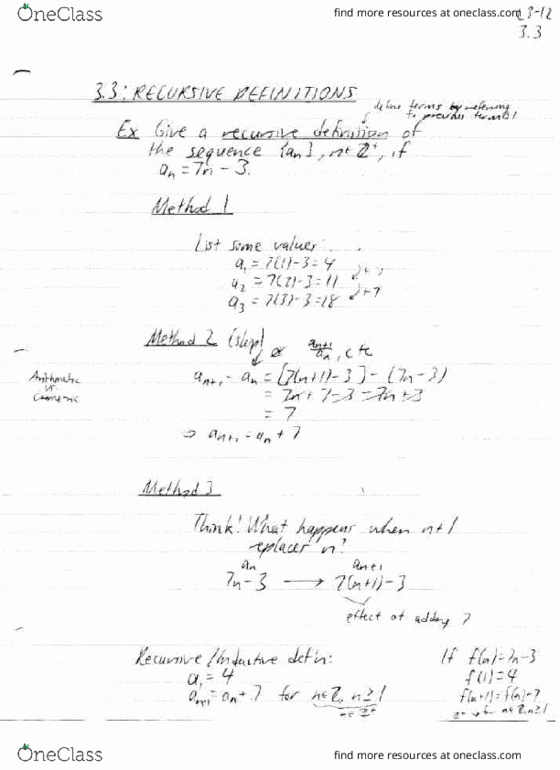 OneClass
find more resources at oneclass.com
3-12
3.3
3.3: RECURSIVE DEFINITIONS
define terms by referring
to previous terms!
Ex Give a recursive definition of
the sequence {an}, n∈Z⁺, if
an = 7n - 3.
Method 1
List some values:
a₁ = 7(1)-3 = 4
a₂ = 7(2)-3 = 11
a₃ = 7(3)-3 = 18
+7
Method 2 (skip)
or an+1/an, etc
Arithmetic
vs.
Geometric
an+1 - an = [7(n+1)-3] - (7n-3)
= 7n+7-3-7n+3
= 7
⇒ an+1 = an + 7
Method 3
Think! What happens when n+1
replaces n?
an an+1
7n-3 → 7(n+1)-3
effect of adding 7
Recursive/Inductive def'n:
a₁ = 4
an+1 = an + 7 for n∈Z, n≥1
n∈Z⁺
If f(n)=7n-3
f(1)=4
f(n+1)=f(n)+7
for n∈Z, n≥1
OneClass
find more resources at oneclass.com